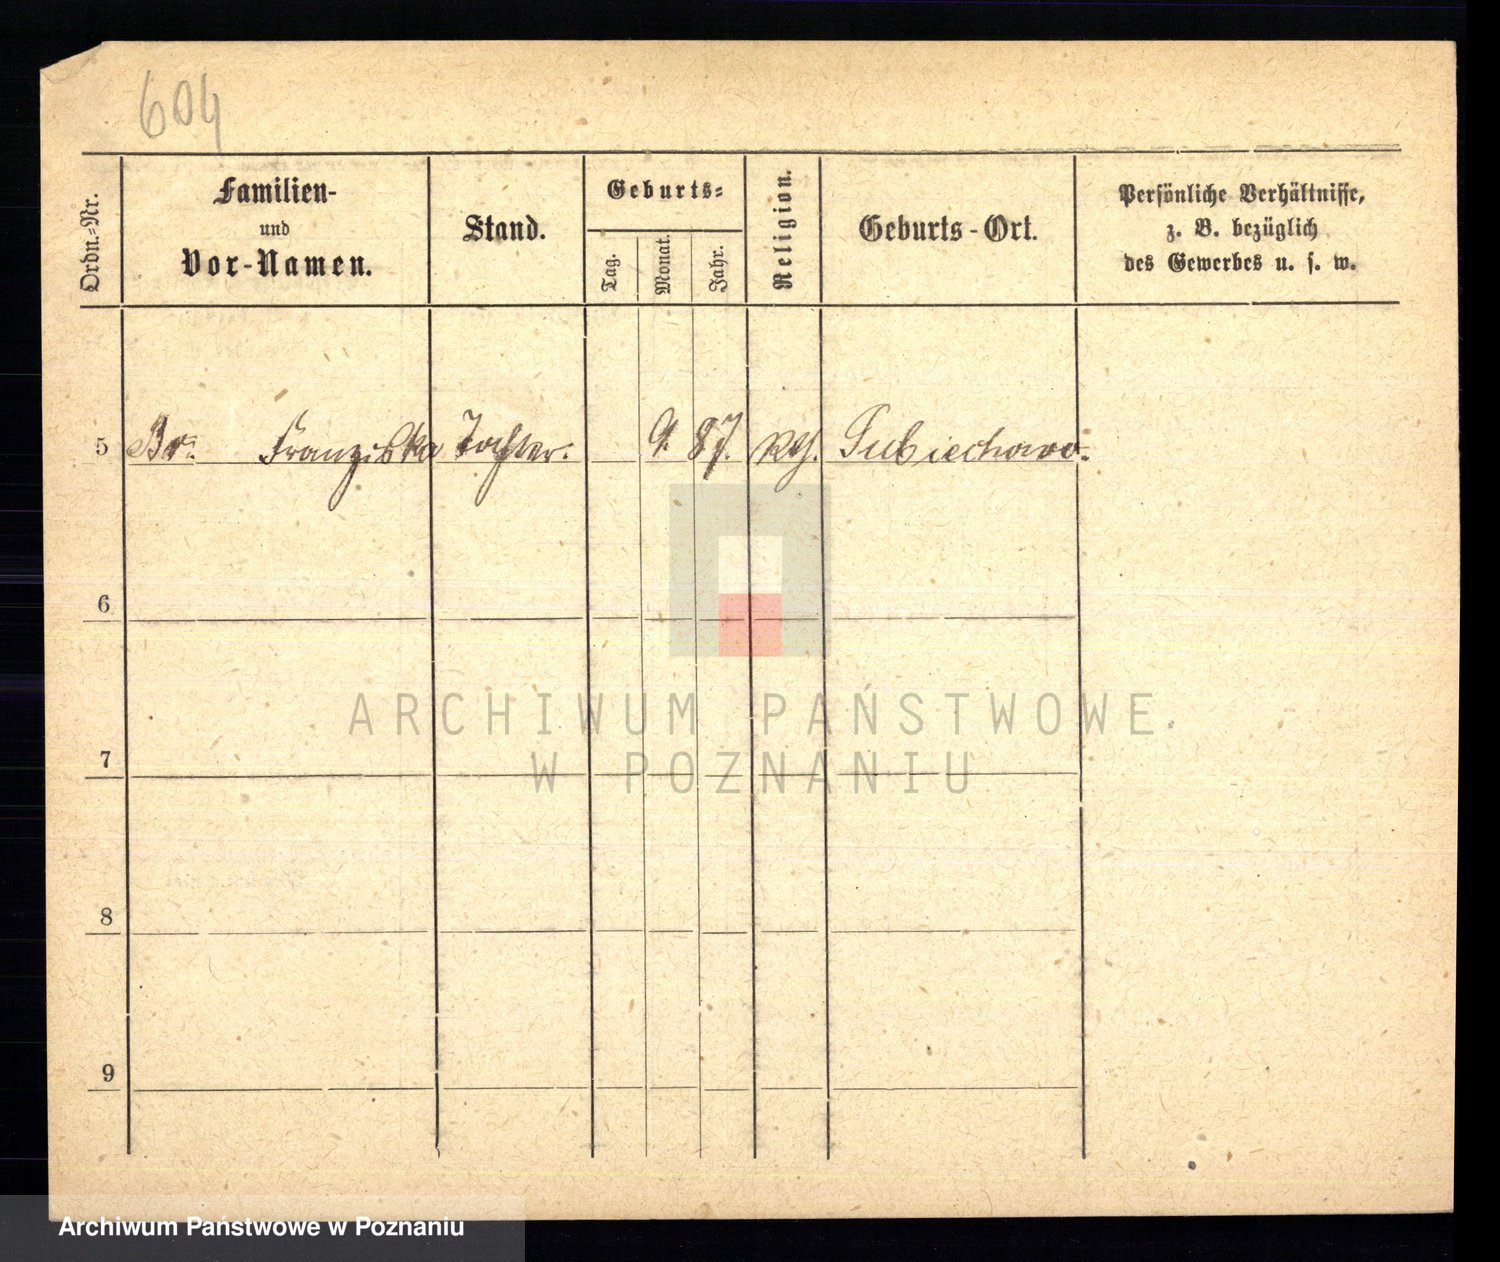 604
Ordn.-Nr.
Familien-
und
Vor-Namen.
Stand.
Geburts-
Tag.
Monat.
Jahr.
Religion.
Geburts-Ort.
Persönliche Verhältnisse,
z. B. bezüglich
des Gewerbes u. s. w.
5 Br. Franziska Tochter. 9. 87. kth. Subiechowo.
6
7
8
9
ARCHIWUM PAŃSTWOWE
W POZNANIU
Archiwum Państwowe w Poznaniu